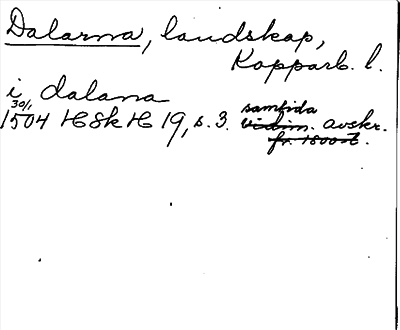 Dalarna, landskap,
Kopparb. l.
i dalana
30/1
1504 HSkH 19, s. 3. samtida
vidim. avskr.
fr. 1800-t.